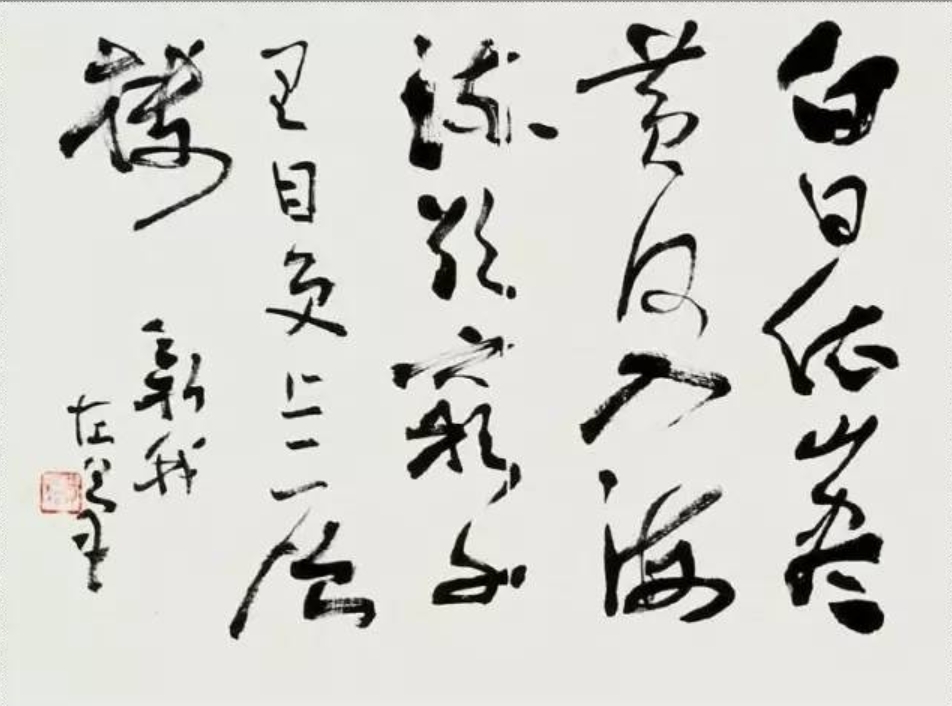 白日依山尽
黄河入海
流欲穷千
里目更上一层
楼
新我
左笔